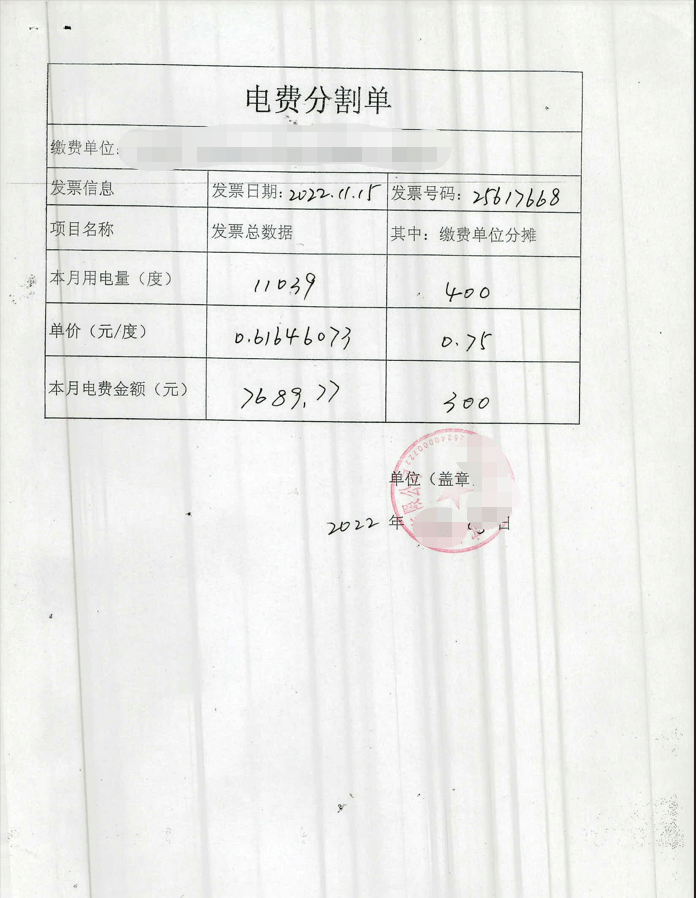 电费分割单
缴费单位:
发票信息 发票日期: 2022.11.15 发票号码: 25617668
项目名称 发票总数据 其中: 缴费单位分摊
本月用电量（度） 11039 400
单价（元/度） 0.61646073 0.75
本月电费金额（元） 7689.77 300
单位（盖章
2022 年 日
限公